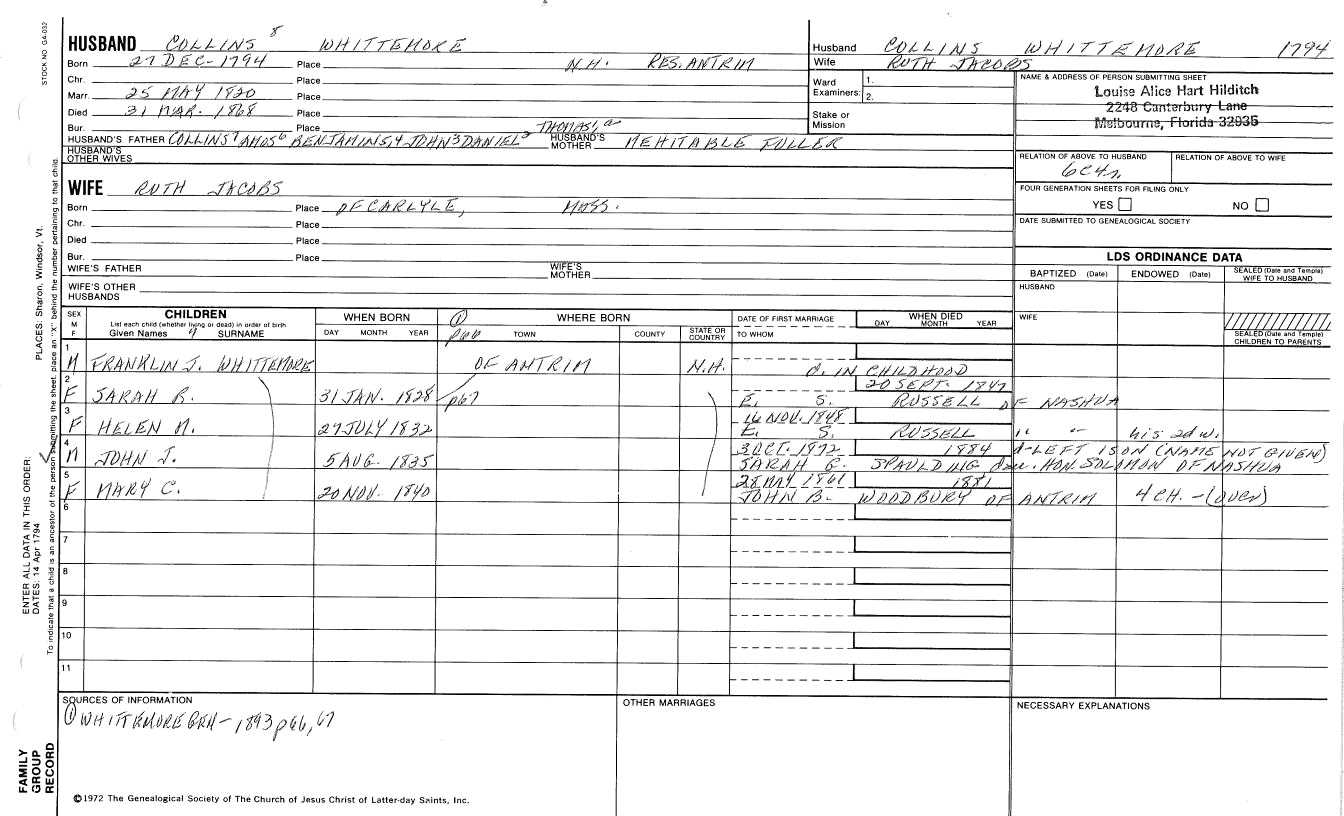 STOCK NO. GA-032
HUSBAND COLLINS 8 WHITTEMORE
Born 27 DEC-1794 Place N.H. RES. ANTRIM
Chr. Place
Marr. 25 MAY 1820 Place
Died 31 MAR. 1868 Place
Bur. Place
HUSBAND'S FATHER COLLINS 7 AMOS 6 BENJAMIN 5,4 JOHN 3 DANIEL 2 THOMAS 1, a HUSBAND'S MOTHER MEHITABLE FULLER
HUSBAND'S OTHER WIVES
Husband COLLINS WHITTEMORE 1794
Wife RUTH JACOBS
Ward Examiners: 1.
2.
Stake or Mission
NAME & ADDRESS OF PERSON SUBMITTING SHEET
Louise Alice Hart Hilditch
2248 Canterbury Lane
Melbourne, Florida 32935
RELATION OF ABOVE TO HUSBAND RELATION OF ABOVE TO WIFE
FOUR GENERATION SHEETS FOR FILING ONLY
YES NO
DATE SUBMITTED TO GENEALOGICAL SOCIETY
WIFE RUTH JACOBS
Born Place OF CARLYLE, MASS.
Chr. Place
Died Place
Bur. Place
WIFE'S FATHER WIFE'S MOTHER
WIFE'S OTHER HUSBANDS
LDS ORDINANCE DATA
BAPTIZED (Date) ENDOWED (Date) SEALED (Date and Temple) WIFE TO HUSBAND
HUSBAND
WIFE
SEALED (Date and Temple) CHILDREN TO PARENTS
SEX M F
CHILDREN
List each child (whether living or dead) in order of birth
Given Names 9 SURNAME
WHEN BORN
DAY MONTH YEAR
① p66 WHERE BORN
TOWN COUNTY STATE OR COUNTRY
DATE OF FIRST MARRIAGE
TO WHOM
WHEN DIED
DAY MONTH YEAR
1 M FRANKLIN J. WHITTEMORE OF ANTRIM N.H. d. IN CHILDHOOD
2 20 SEPT. 1847
F SARAH R. 31 JAN. 1828 p67 E. S. RUSSELL OF NASHUA
3 16 NOV. 1848
F HELEN M. 27 JULY 1832 E. S. RUSSELL " " his 2d w.
4 3 OCT. 1872 1884 d-LEFT 1 SON (NAME NOT GIVEN)
M JOHN J. 5 AUG. 1835 SARAH G. SPAULDING dau. HON. SOLOMON OF NASHUA
5 28 MAY 1861 1881
F MARY C. 20 NOV. 1840 JOHN B. WOODBURY OF ANTRIM 4 CH. - (OVER)
6
7
8
9
10
11
SOURCES OF INFORMATION
① WHITTEMORE GEN - 1893 p66, 67
OTHER MARRIAGES
NECESSARY EXPLANATIONS
©1972 The Genealogical Society of The Church of Jesus Christ of Latter-day Saints, Inc.
PLACES: Sharon, Windsor, Vt.
ENTER ALL DATA IN THIS ORDER:
DATES: 14 Apr 1794
To indicate that a child is an ancestor of the person submitting the sheet, place an "X" behind the number pertaining to that child.
FAMILY
GROUP
RECORD